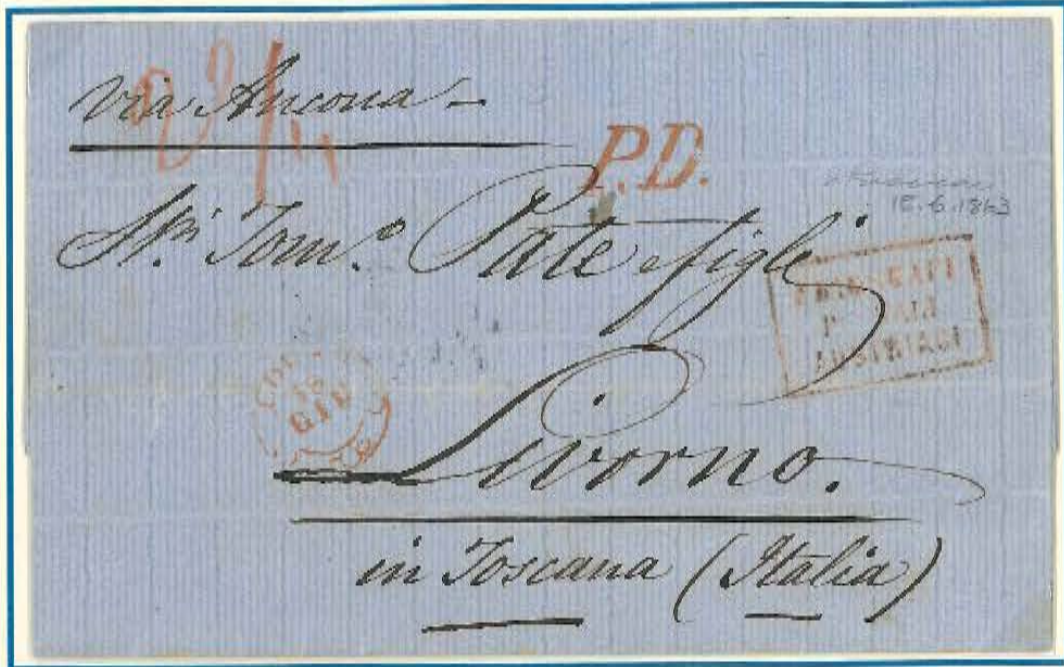 via Ancona
P.D.
18.6.1863
Sri. Tomo. Pate e figli
PIROSCAFI
POSTALI
AUSTRIACI
18
GIU
Livorno.
in Toscana (Italia)